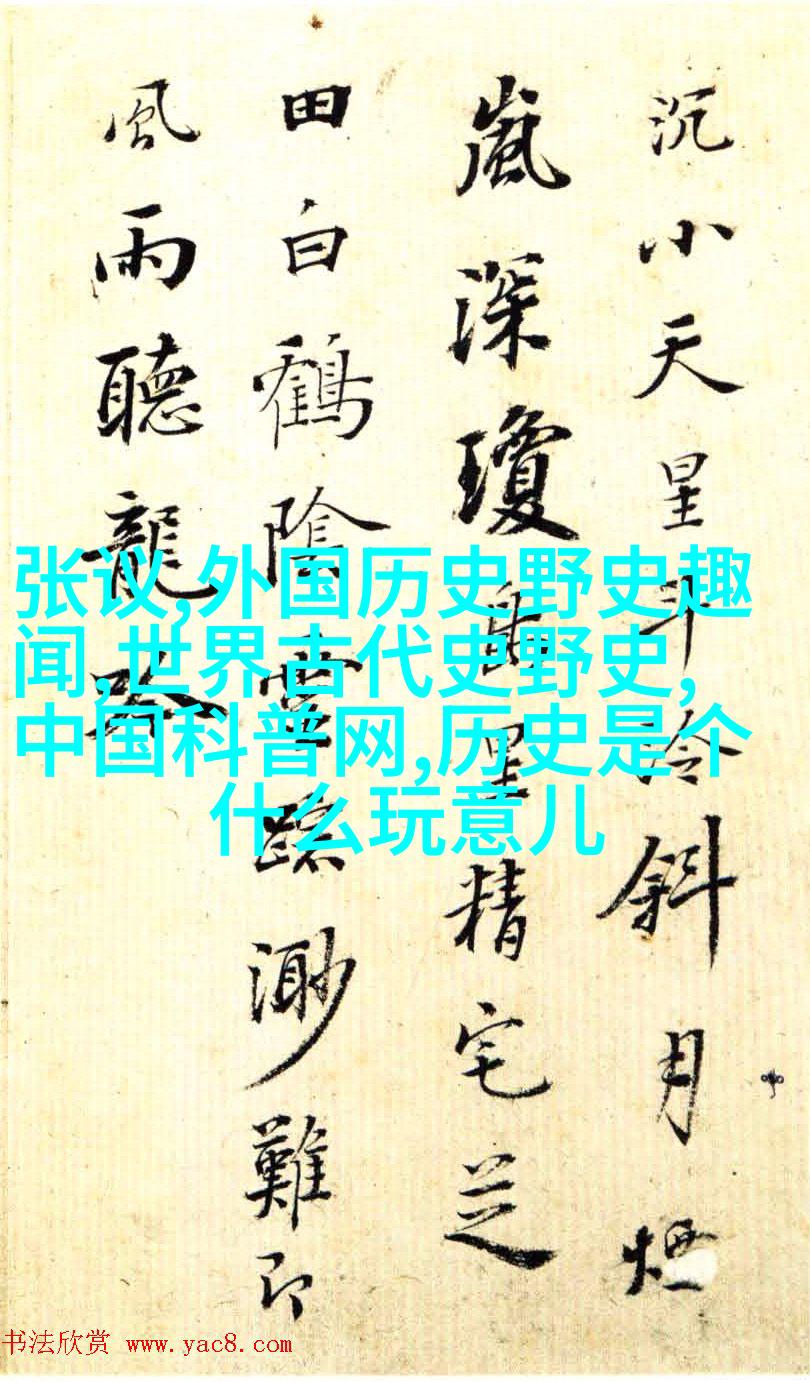 沉小天星斗冷斜月煙
嵐深瓊精宅芝
田白鶴陰靈蹤渺難即
風雨聽龍
张议,外国历史野史趣
闻,世界古代史野史,
中国科普网,历史是个
什么玩意儿
书法欣赏 www.yac8.com